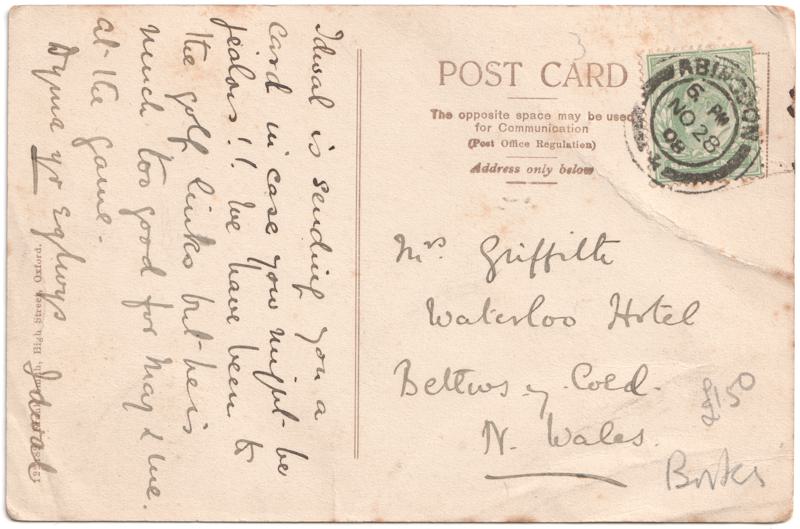 Idwal is sending you a
card in case you might be
jealous!! We have been to
the golf links but he is
much too good for May & me.
at the game.
Dyma yr Eglwys
Idwal
High Street, Oxford.
POST CARD
The opposite space may be used
for Communication
(Post Office Regulation)
Address only below
ABINGDON
6 PM
NO 28
08
Mrs Griffith
Waterloo Hotel
Bettws-y-Coed.
N. Wales.
Books